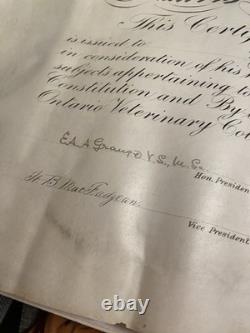 This Certif
is issued to
in consideration of his
subjects appertaining to
Constitution and By
Ontario Veterinary Col
E.A.A. Grange V.S., M.Sc.
Hon. President
H. B. MacFadgean.
Vice President